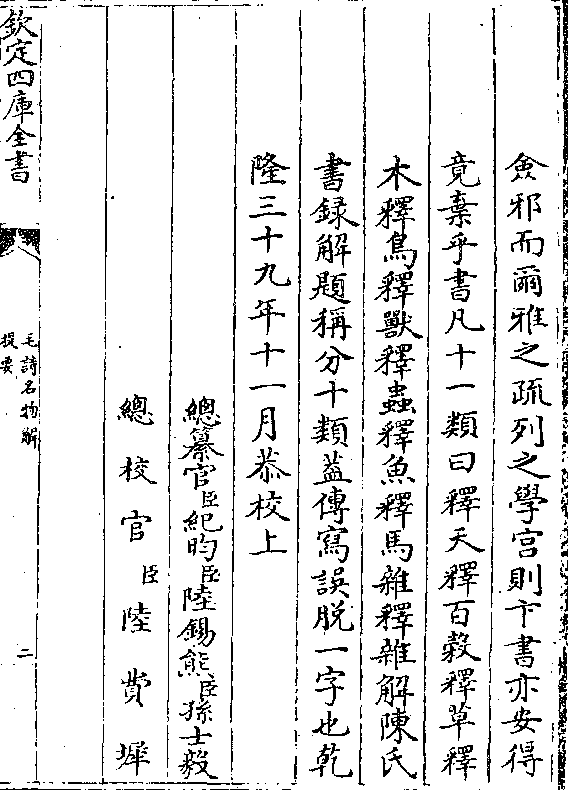 僉邪而爾雅之疏列之學宫則卞書亦安得
竟棄乎書凡十一類曰釋天釋百穀釋草釋
木釋鳥釋獸釋蟲釋魚釋馬雜釋雜解陳氏
書録解題稱分十類葢傳寫誤脱一字也乾
隆三十九年十一月恭校上
總纂官臣紀昀臣陸錫熊臣孫士毅
總校官臣陸費墀
欽定四庫全書
毛詩名物解
提要
二